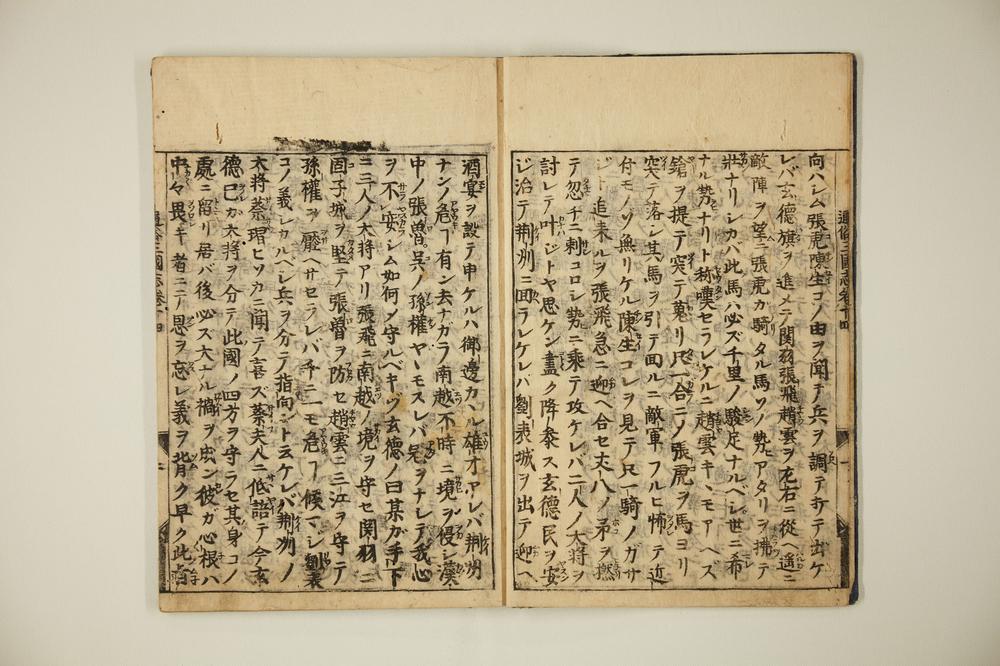 向ハシム張虎陳生コノ由ヲ聞テ兵ヲ調テ打テ出ケ
レバ玄德旗ヲ進メテ関羽張飛趙雲ヲ左右ニ從ヘ遙ニ
敵陣ヲ望ニ張虎カ騎タル馬ソノ勢ヒアタリヲ拂テ
壯ナリシカバ此馬ハ必ズ千里ノ駿足ナルベシ世ニ希
ナル勢ナリト称嘆セラレケルニ趙雲キヽモアヘズ
鎗ヲ提テ突テ蒐リ只一合ニノ張虎ヲ馬ヨリ
突テ落シ其馬ヲ引テ回ルニ敵軍フルヒ怖テ近
付モノソ無リケル陳生コレヲ見テ只一騎ノガサ
ジト追来ルヲ張飛急ニ迎ヘ合セ丈八ノ矛ヲ撚
テ忽チニ刺コロシ勢ニ乘テ攻ケレバ二人ノ大将ヲ
討レテ叶ジトヤ思ケン盡ク降參ス玄德民ヲ安
ジ治テ荆州ニ回ラレケレバ劉表城ヲ出テ迎ヘ
酒宴ヲ設テ申ケルハ御邊カヽル雄才アレバ荆州
ナンノ危フ有ン去ナガラ南越不時ニ境ヲ侵シ漢
中ノ張魯呉ノ孫權ヤヽモスレバ冦ヲナシテ我心
ヲ不安シム如何ノ守ルベキゾ玄德ノ曰某が手下
ニ三人ノ大将アリ張飛ニ南越ノ境ヲ守セ関羽ニ
固子城ヲ堅テ張魯ヲ防セ趙雲ニ三江ヲ守テ
孫權ヲ壓ヘサセラレバ千ニ一モ危フ候マジ劉表
コノ義シカルベシ兵ヲ分テ指向ントテ云ケレバ荆州ノ
大将蔡瑁ヒソカニ聞テ喜ズ蔡夫人ニ低語テ今玄
德已カ大将ヲ分テ此國ノ四方ヲ守ラセ其身コノ
處ニ留リ居バ後必ス大ナル禍ヲ出ン彼ガ心根ハ
中々畏キ者ニテ恩ヲ忘レ義ヲ背ク早ク此
通俗三國志卷十四
通俗三國志卷十四